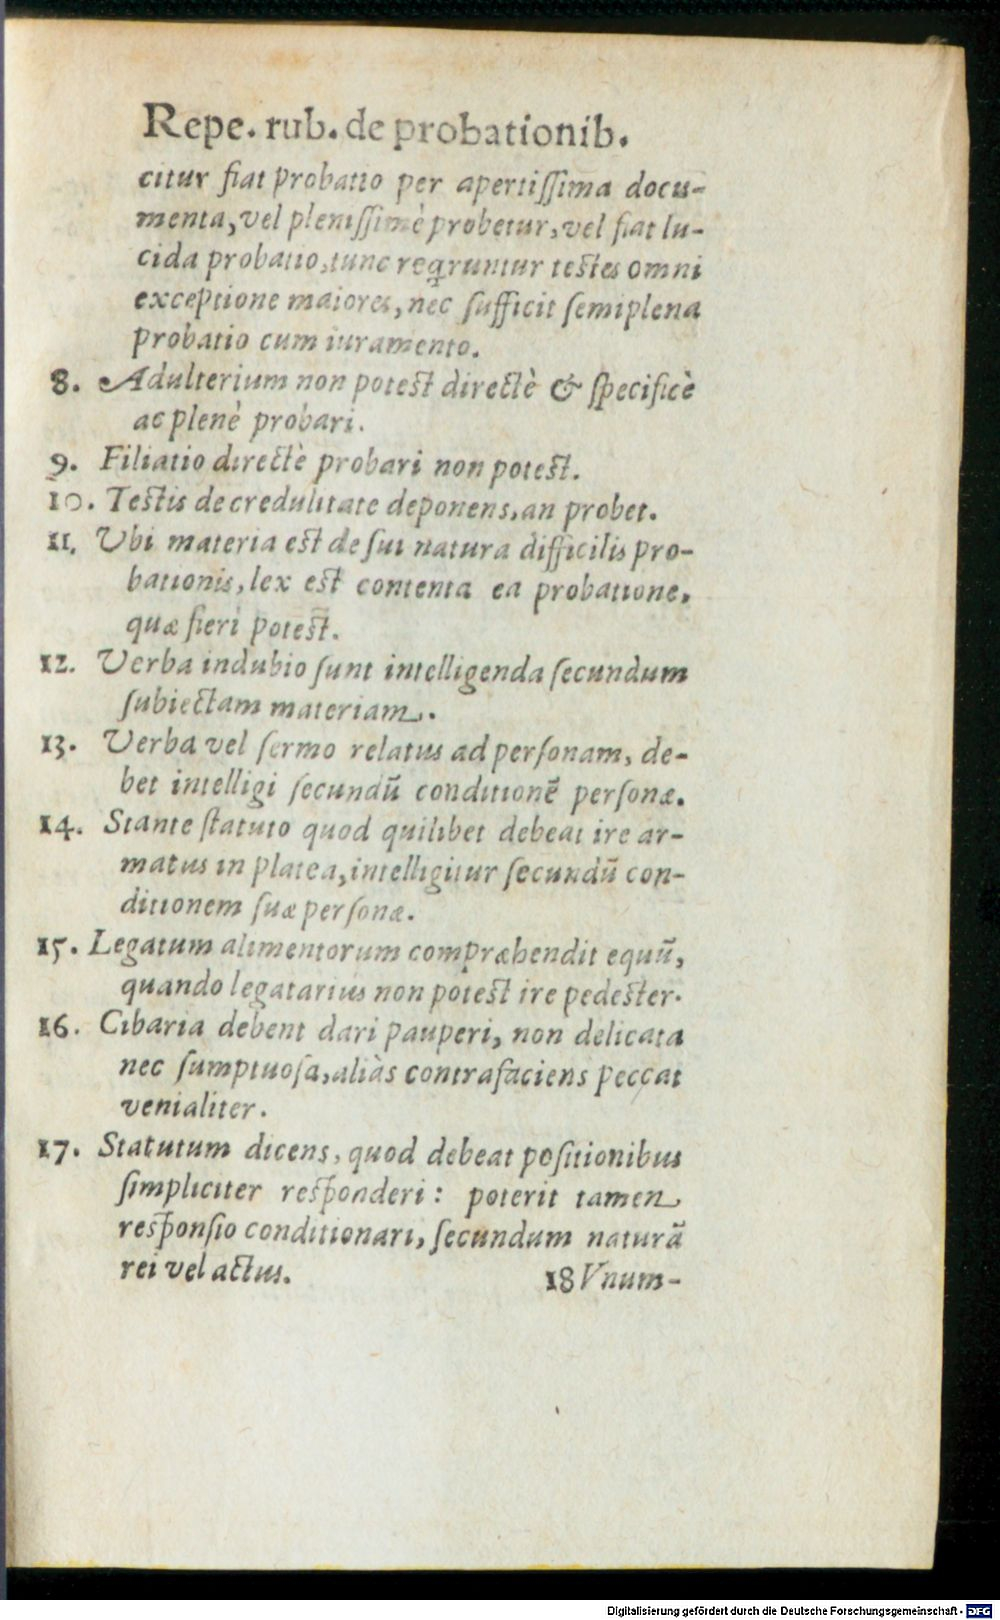 Repe. rub. de probationib.
citur fiat probatio per apertissima docu-
menta, vel plenissimè probetur, vel fiat lu-
cida probatio, tunc reqꝛruntur testes omni
exceptione maiores, nec sufficit semiplena
probatio cum iuramento.
8. Adulterium non potest directè & specificè
ac plenè probari.
9. Filiatio directè probari non potest.
10. Testis de credulitate deponens, an probet.
11. Ubi materia est de sui natura difficilis pro-
bationis, lex est contenta ea probatione,
quæ fieri potest.
12. Verba indubio sunt intelligenda secundum
subiectam materiam.
13. Verba vel sermo relatus ad personam, de-
bet intelligi secundũ conditionẽ personæ.
14. Stante statuto quod quilibet debeat ire ar-
matus in platea, intelligitur secundũ con-
ditionem suæ personæ.
15. Legatum alimentorum compræhendit equũ,
quando legatarius non potest ire pedester.
16. Cibaria debent dari pauperi, non delicata
nec sumptuosa, aliàs contrafaciens peccat
venialiter.
17. Statutum dicens, quod debeat positionibus
simpliciter responderi: poterit tamen
responsio conditionari, secundum naturã
rei vel actus.
18 Vnum-
Digitalisierung gefördert durch die Deutsche Forschungsgemeinschaft - DFG